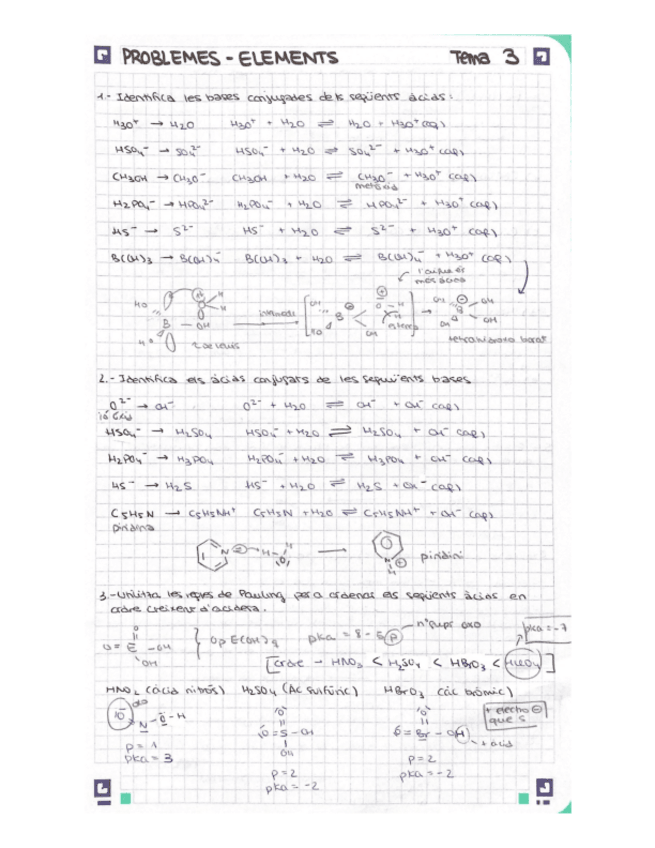 PROBLEMES - ELEMENTS Tema 3
1.- Identifica les bases conjugades dels següents àcids:
H3O+ → H2O H3O+ + H2O ⇌ H2O + H3O+ (aq)
HSO4- → SO4 2- HSO4- + H2O ⇌ SO4 2- + H3O+ (aq)
CH3OH → CH3O- CH3OH + H2O ⇌ CH3O- + H3O+ (aq)
metòxid
H2PO4- → HPO4 2- H2PO4- + H2O ⇌ HPO4 2- + H3O+ (aq)
HS- → S2- HS- + H2O ⇌ S2- + H3O+ (aq)
B(OH)3 → B(OH)4- B(OH)3 + H2O ⇌ B(OH)4- + H3O+ (aq)
més àcid
HO B - OH
2.- Identifica els àcids conjugats de les següents bases
O2- → OH- O2- + H2O ⇌ OH- + OH- (aq)
ió òxid
HSO4- → H2SO4 HSO4- + H2O ⇌ H2SO4 + OH- (aq)
H2PO4- → H3PO4 H2PO4- + H2O ⇌ H3PO4 + OH- (aq)
HS- → H2S HS- + H2O ⇌ H2S + OH- (aq)
C5H5N → C5H5NH+ C5H5N + H2O ⇌ C5H5NH+ + OH- (aq)
piridina
N H - O → N H piridini
3.- Utilitza les regles de Pauling per a ordenar els següents àcids en
ordre creixent d'acidesa.
O = E - OH OH } OpE(OH)q pka = 8 - 5p nº grups oxo pka = -7
[ordre → HNO2 < H2SO4 < HBrO3 < HClO4]
HNO2 (àcid nitrós) H2SO4 (Ac sulfúric) HBrO3 (àc bròmic)
+ electro
que S
O N - O - H O = S - OH O = Br - OH + àcid
p = 1
pka = 3
OH
p = 2 p = 2
pka = -2 pka = -2